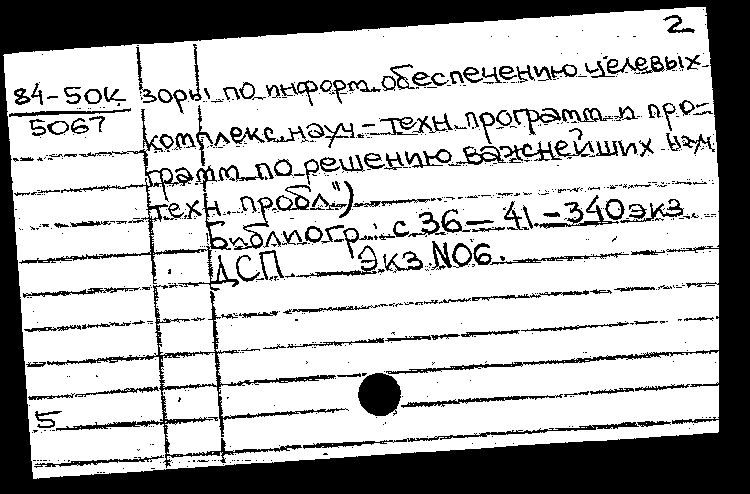 2
84-50К зоры по информ. обеспечению целевых
5067
комплекс. науч.-техн. программ и про-
грамм по решению важнейших науч
техн. пробл.")
Библиогр.: с 36-41 - 340 экз.
ДСП Экз. №06.
5